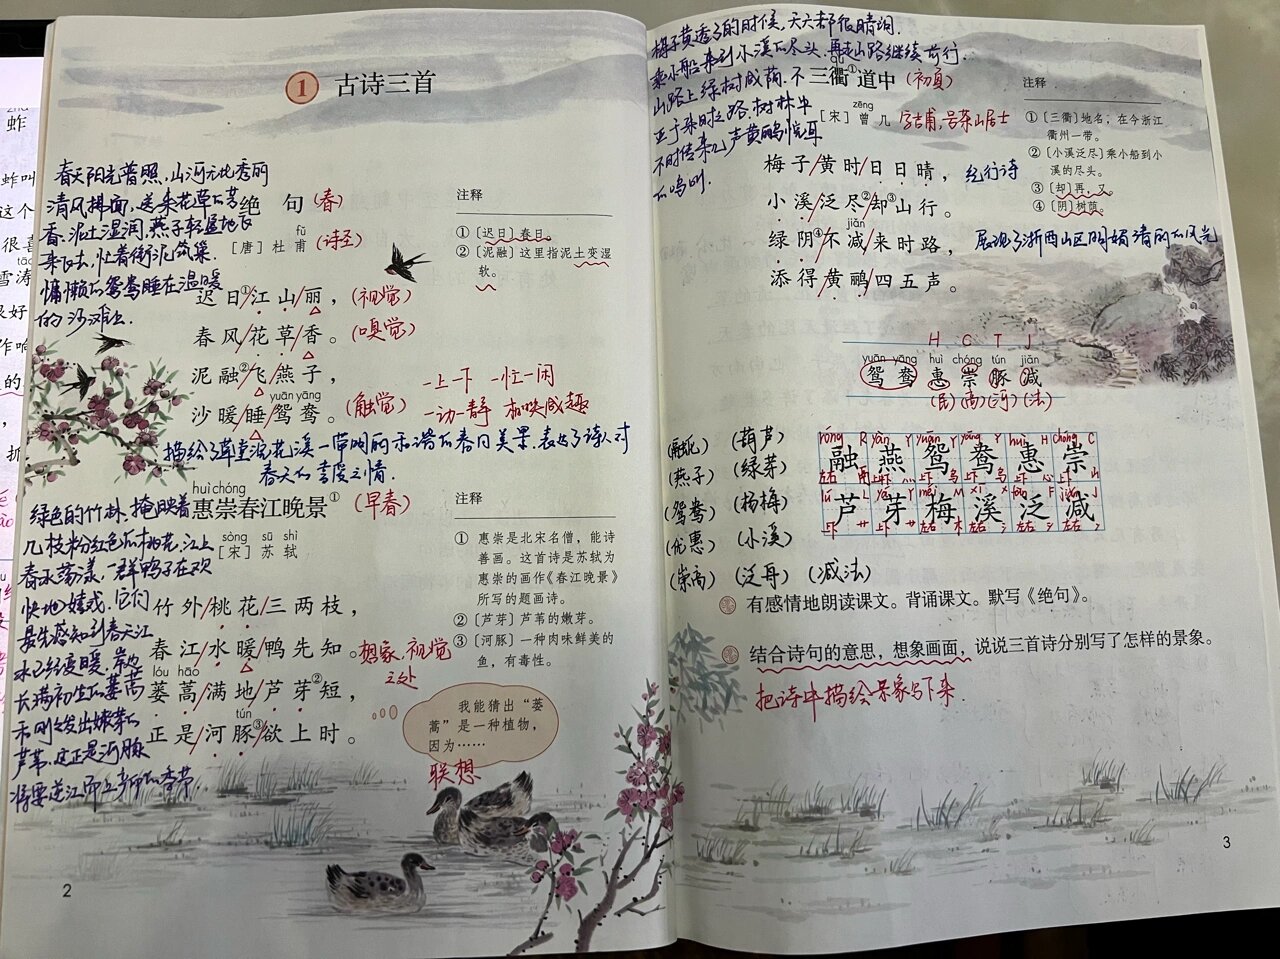 1 古诗三首
春天阳光普照,山河无比秀丽
清风拂面,送来花草的芳
香.泥土湿润,燕子轻盈地飞
来飞去,忙着衔泥筑巢.
慵懒的鸳鸯睡在温暖
的沙滩上.
绝 句 (春)
fǔ
[唐] 杜 甫 (诗圣)
迟日①/江山/丽, (视觉)
春风/花草/香。 (嗅觉)
泥融②/飞/燕子,
yuān yāng
沙暖/睡/鸳鸯。 (触觉)
一上一下 一忙一闲
一动一静 相映成趣
描绘了草堂浣花溪一带明丽和谐的春日美景.表达了诗人对
春天的喜爱之情.
注释
① 〔迟日〕春日。
② 〔泥融〕这里指泥土变湿
软。
huì chóng
惠崇春江晚景① (早春)
sòng sū shì
[宋] 苏 轼
竹外/桃花/三两枝,
春江/水暖/鸭先知。 想象.视觉
之处
lóu hāo
蒌蒿/满地/芦芽②短,
tún
正是/河豚③/欲上时。
绿色的竹林,掩映着
几枝粉红色的桃花,江上
春水荡漾,一群鸭子在欢
快地嬉戏.它们
最先感知到春天江
水已经变暖.岸边
长满初生的蒌蒿
和刚刚发出嫩芽的
芦苇,这正是河豚
将要逆江而上产卵的季节.
注释
① 惠崇是北宋名僧,能诗
善画。这首诗是苏轼为
惠崇的画作《春江晚景》
所写的题画诗。
② 〔芦芽〕芦苇的嫩芽。
③ 〔河豚〕一种肉味鲜美的
鱼,有毒性。
我能猜出“蒌
蒿”是一种植物,
因为……
联想
2
梅子黄透了的时候,天天都很晴朗.
乘小船来到小溪的尽头.再走山路继续前行.
山路上绿树成荫.不
亚于来时之路.树林中
不时传来几声黄鹂悦耳
的鸣叫.
qú
三衢①道中 (初夏)
zēng
[宋] 曾 几 字吉甫,号茶山居士
梅子/黄时/日日晴, 纪行诗
小溪/泛尽②/却③山行。
jiǎn
绿阴④/不减/来时路, 展现了浙西山区明媚清丽的风光
添得/黄鹂/四五声。
注释
① 〔三衢〕地名,在今浙江
衢州一带。
② 〔小溪泛尽〕乘小船到小
溪的尽头。
③ 〔却〕再,又。
④ 〔阴〕树荫。
H C T J
yuān yāng huì chóng tún jiǎn
鸳 鸯 惠 崇 豚 减
(民) (高) (河) (法)
融 燕 鸳 鸯 惠 崇
芦 芽 梅 溪 泛 减
(融化) (葫芦)
(燕子) (绿芽)
(鸳鸯) (杨梅)
(优惠) (小溪)
(崇高) (泛舟) (减法)
有感情地朗读课文。背诵课文。默写《绝句》。
结合诗句的意思,想象画面,说说三首诗分别写了怎样的景象。
把诗中描绘景象写下来
3